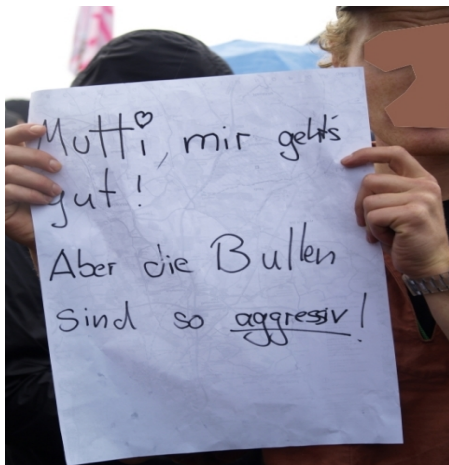 Mutti, mir geht's
gut!
Aber die Bullen
sind so aggressiv!